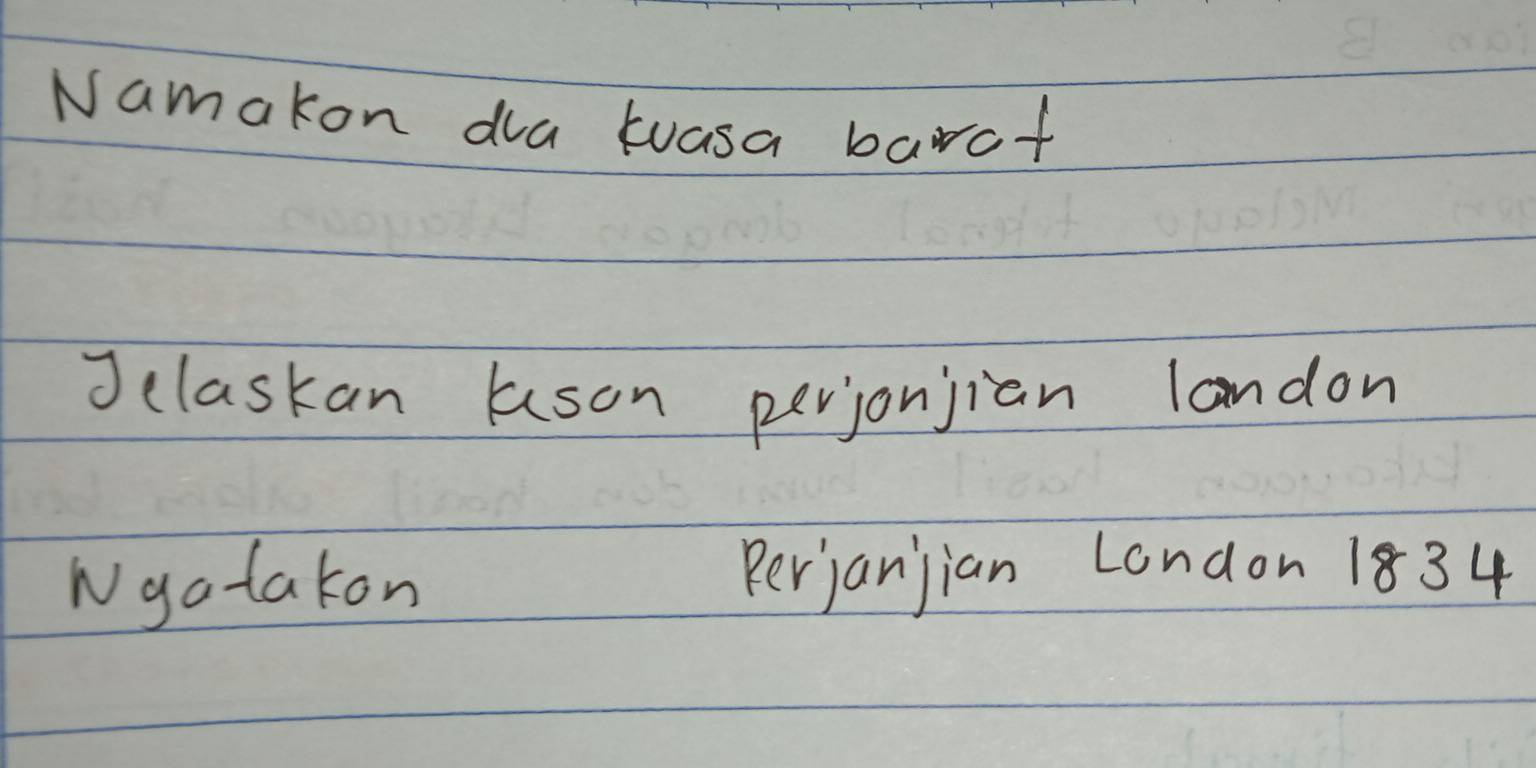 Namakan dua kuasa barat
Jelaskan kesan perjanjian london
Nyatakan Perjanjian London 1834